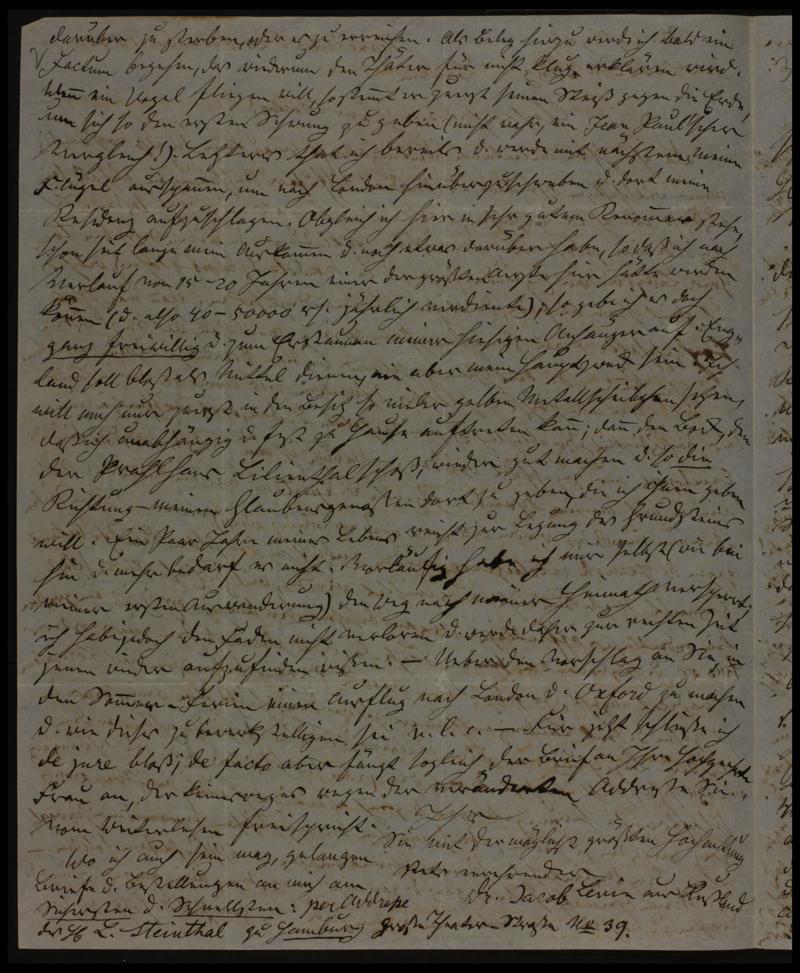 darüber zu sterben, oder es zu erreichen. Als Beleg hierzu werde ich bald ein
Factum begehen, das wiederum den Thäter für nicht klug erklären wird.
Wenn ein Vogel fliegen will, so stemmt er zuerst seinen Steiß gegen die Erde,
um sich so den ersten Schwung zu geben (nicht wahr, ein Jean Paul'scher
Vergleich!). Letzteres that ich bereits u. werde mit nächstem meine
Flügel ausspannen, um nach London hinüberzuschweben u. dort meine
Residenz aufzuschlagen. Obgleich ich hier in sehr gutem Renommee stehe,
schon seit lange mein Auskommen u. noch etwas darüber habe, so daß ich nach
Verlauf von 15–20 Jahren einer der größten Aerzte hier hätte werden
können (u. also 40–50000 rh. jährlich verdiente); so gebe ich es doch
ganz freiwillig u. zum Erstaunen meiner hiesigen Anhänger auf. Eng-
land soll blos als Mittel dienen, nie aber mein Hauptzweck sein. Ich
will mich nur zuerst in den Besitz so vieler gelben Metallscheibchen setzen,
daß ich unabhängig u. fest zu Hause auftreten kann; dann den Bock, den
der Prahlhans Lilienthal schoß, wieder gut machen u. so die
Richtung meinen Glaubensgenossen dort zu geben, die ich ihnen geben
will. Ein Paar Jahre meines Lebens reicht zur Legung des Grundsteins
hin u. mehr bedarf es nicht. Vorläufig habe ich mir selbst (wie bei
meiner ersten Auswanderung) den Weg nach meiner Heimath versperrt.
ich habe jedoch den Faden nicht verloren u. werde daher zur rechten Zeit
jenen wieder aufzufinden wissen. — Ueber den Vorschlag an Sie, in
den Sommer-Ferien einen Ausflug nach London u. Oxford zu machen
u. wie dieses zu bewerkstelligen sei — Für jetzt schließe ich
de jure blos; de facto aber fängt sogleich der Brief an Ihre hochgeehrte
Frau an, der keineswegs wegen der veränderten Addresse Sie
vom Weiterlesen freispricht.
Ihr
Sie mit der möglichst größten Hochachtung
stets verehrender
Dr. Jacob Levin aus Rußland
Wo ich auch sein mag, gelangen
Briefe u. Bestellungen an mich am
Sichersten u. Schnellsten: per Addresse
des H. L. Steinthal zu Hamburg Große Theater-Straße No 39.